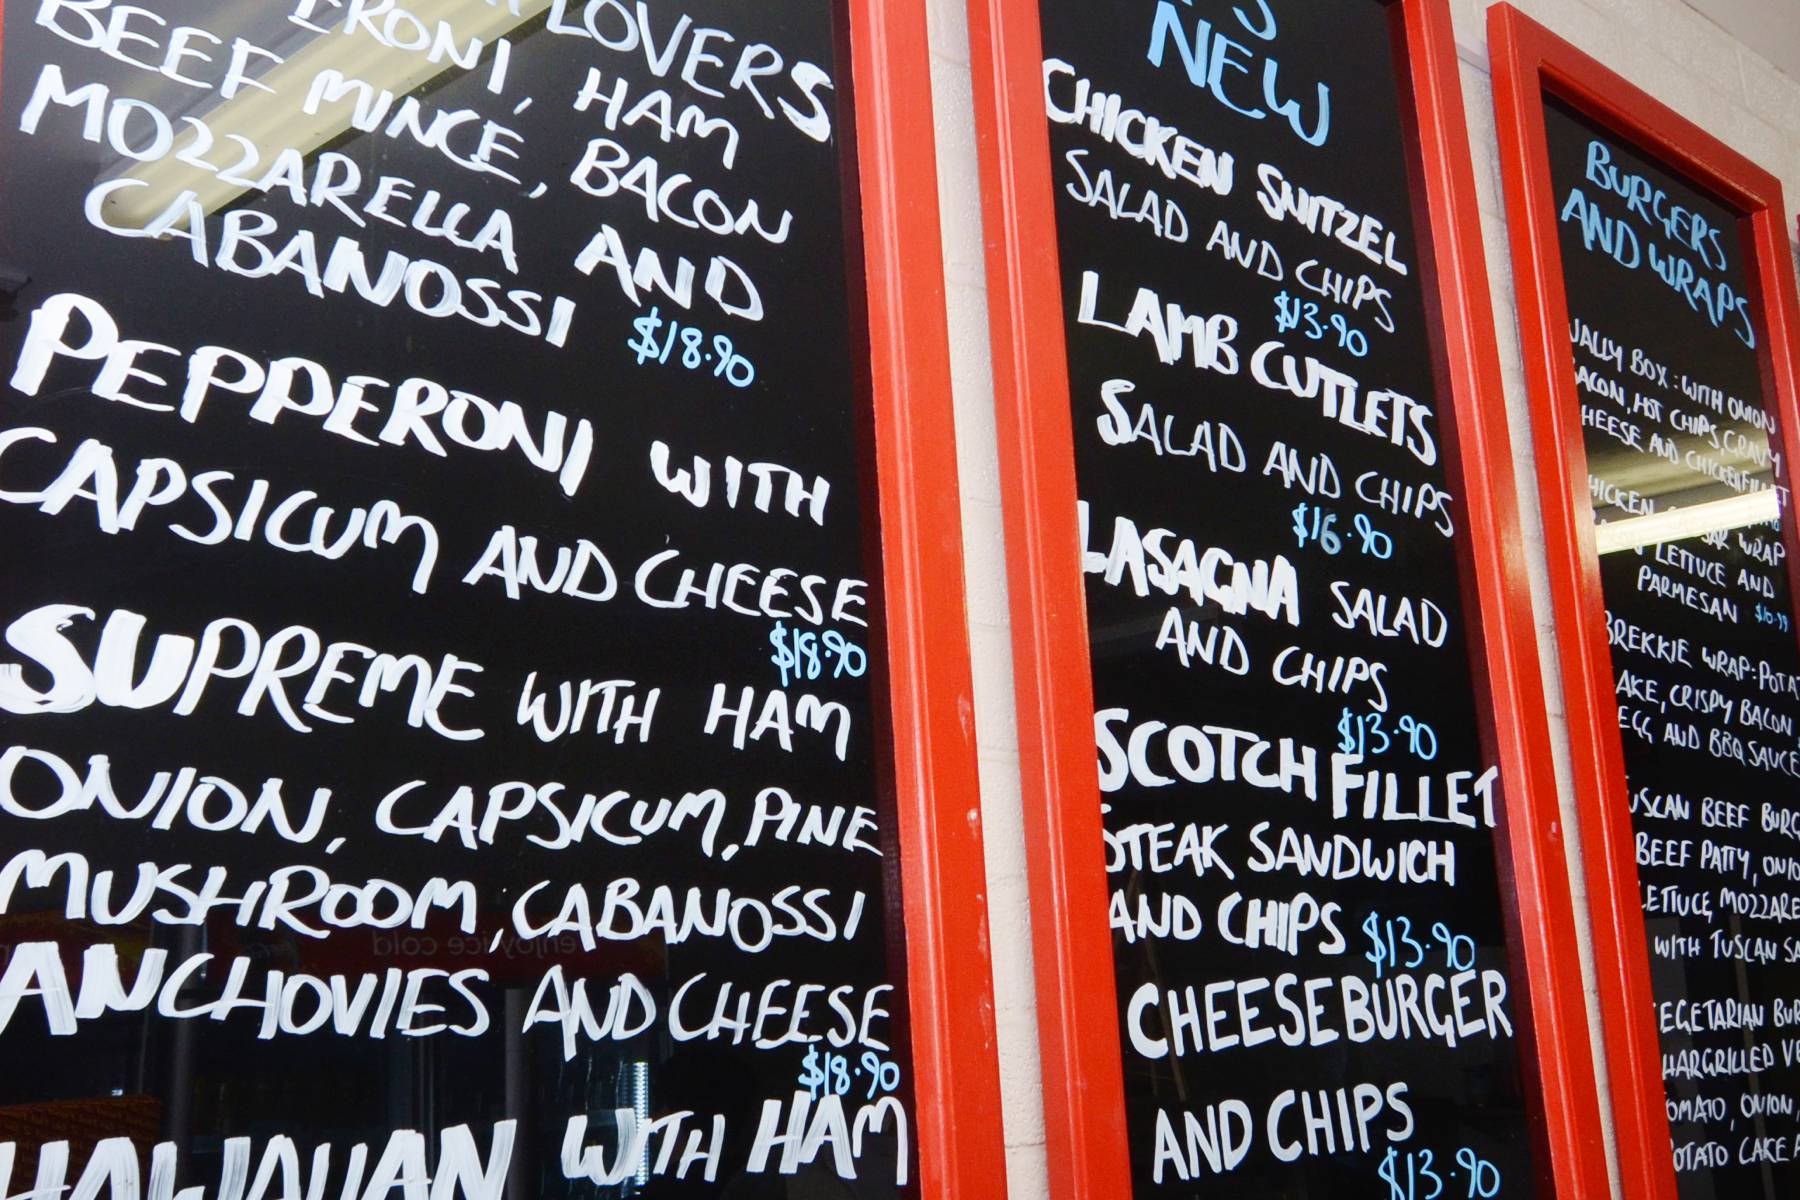 LOVERS
HAM
BEEF MINCE, BACON
MOZZARELLA AND
CABANOSSI $18.90
PEPPERONI WITH
CAPSICUM AND CHEESE
$18.90
SUPREME WITH HAM
ONION, CAPSICUM, PINE
MUSHROOM, CABANOSSI
ANCHOVIES AND CHEESE
$18.90
HAWAIIAN WITH HAM
enjoy ice cold
NEW
CHICKEN SNITZEL
SALAD AND CHIPS
$13.90
LAMB CUTLETS
SALAD AND CHIPS
$16.90
LASAGNA SALAD
AND CHIPS
$13.90
SCOTCH FILLET
STEAK SANDWICH
AND CHIPS $13.90
CHEESEBURGER
AND CHIPS
$13.90
BURGERS
AND WRAPS
WALLY BOX: WITH ONION
BACON, HOT CHIPS, GRAVY
CHEESE AND CHICKEN FILLET
CHICKEN
WRAP
LETTUCE AND
PARMESAN $10.99
BREKKIE WRAP: POTAT
CAKE, CRISPY BACON
EGG AND BBQ SAUCE
TUSCAN BEEF BURG
BEEF PATTY, ONIO
LETTUCE, MOZZARE
WITH TUSCAN SA
VEGETARIAN BUR
CHARGRILLED VE
TOMATO, ONION,
POTATO CAKE